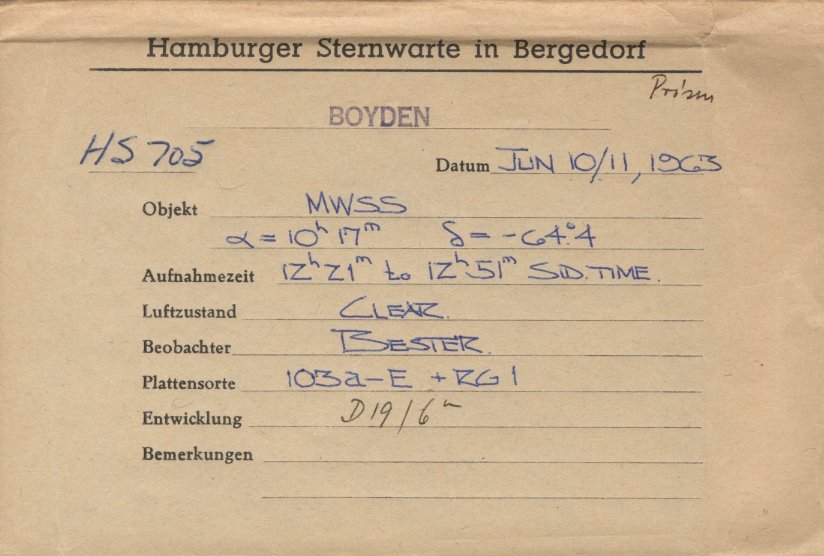 Hamburger Sternwarte in Bergedorf
Prism
BOYDEN
HS 705
Datum JUN 10/11, 1963
Objekt MWSS
α = 10ʰ 17ᵐ δ = -64°.4
Aufnahmezeit 12ʰ 21ᵐ to 12ʰ 51ᵐ SID. TIME.
Luftzustand CLEAR.
Beobachter BESTER.
Plattensorte 103a-E + RG 1
Entwicklung D19/6ᵐ
Bemerkungen